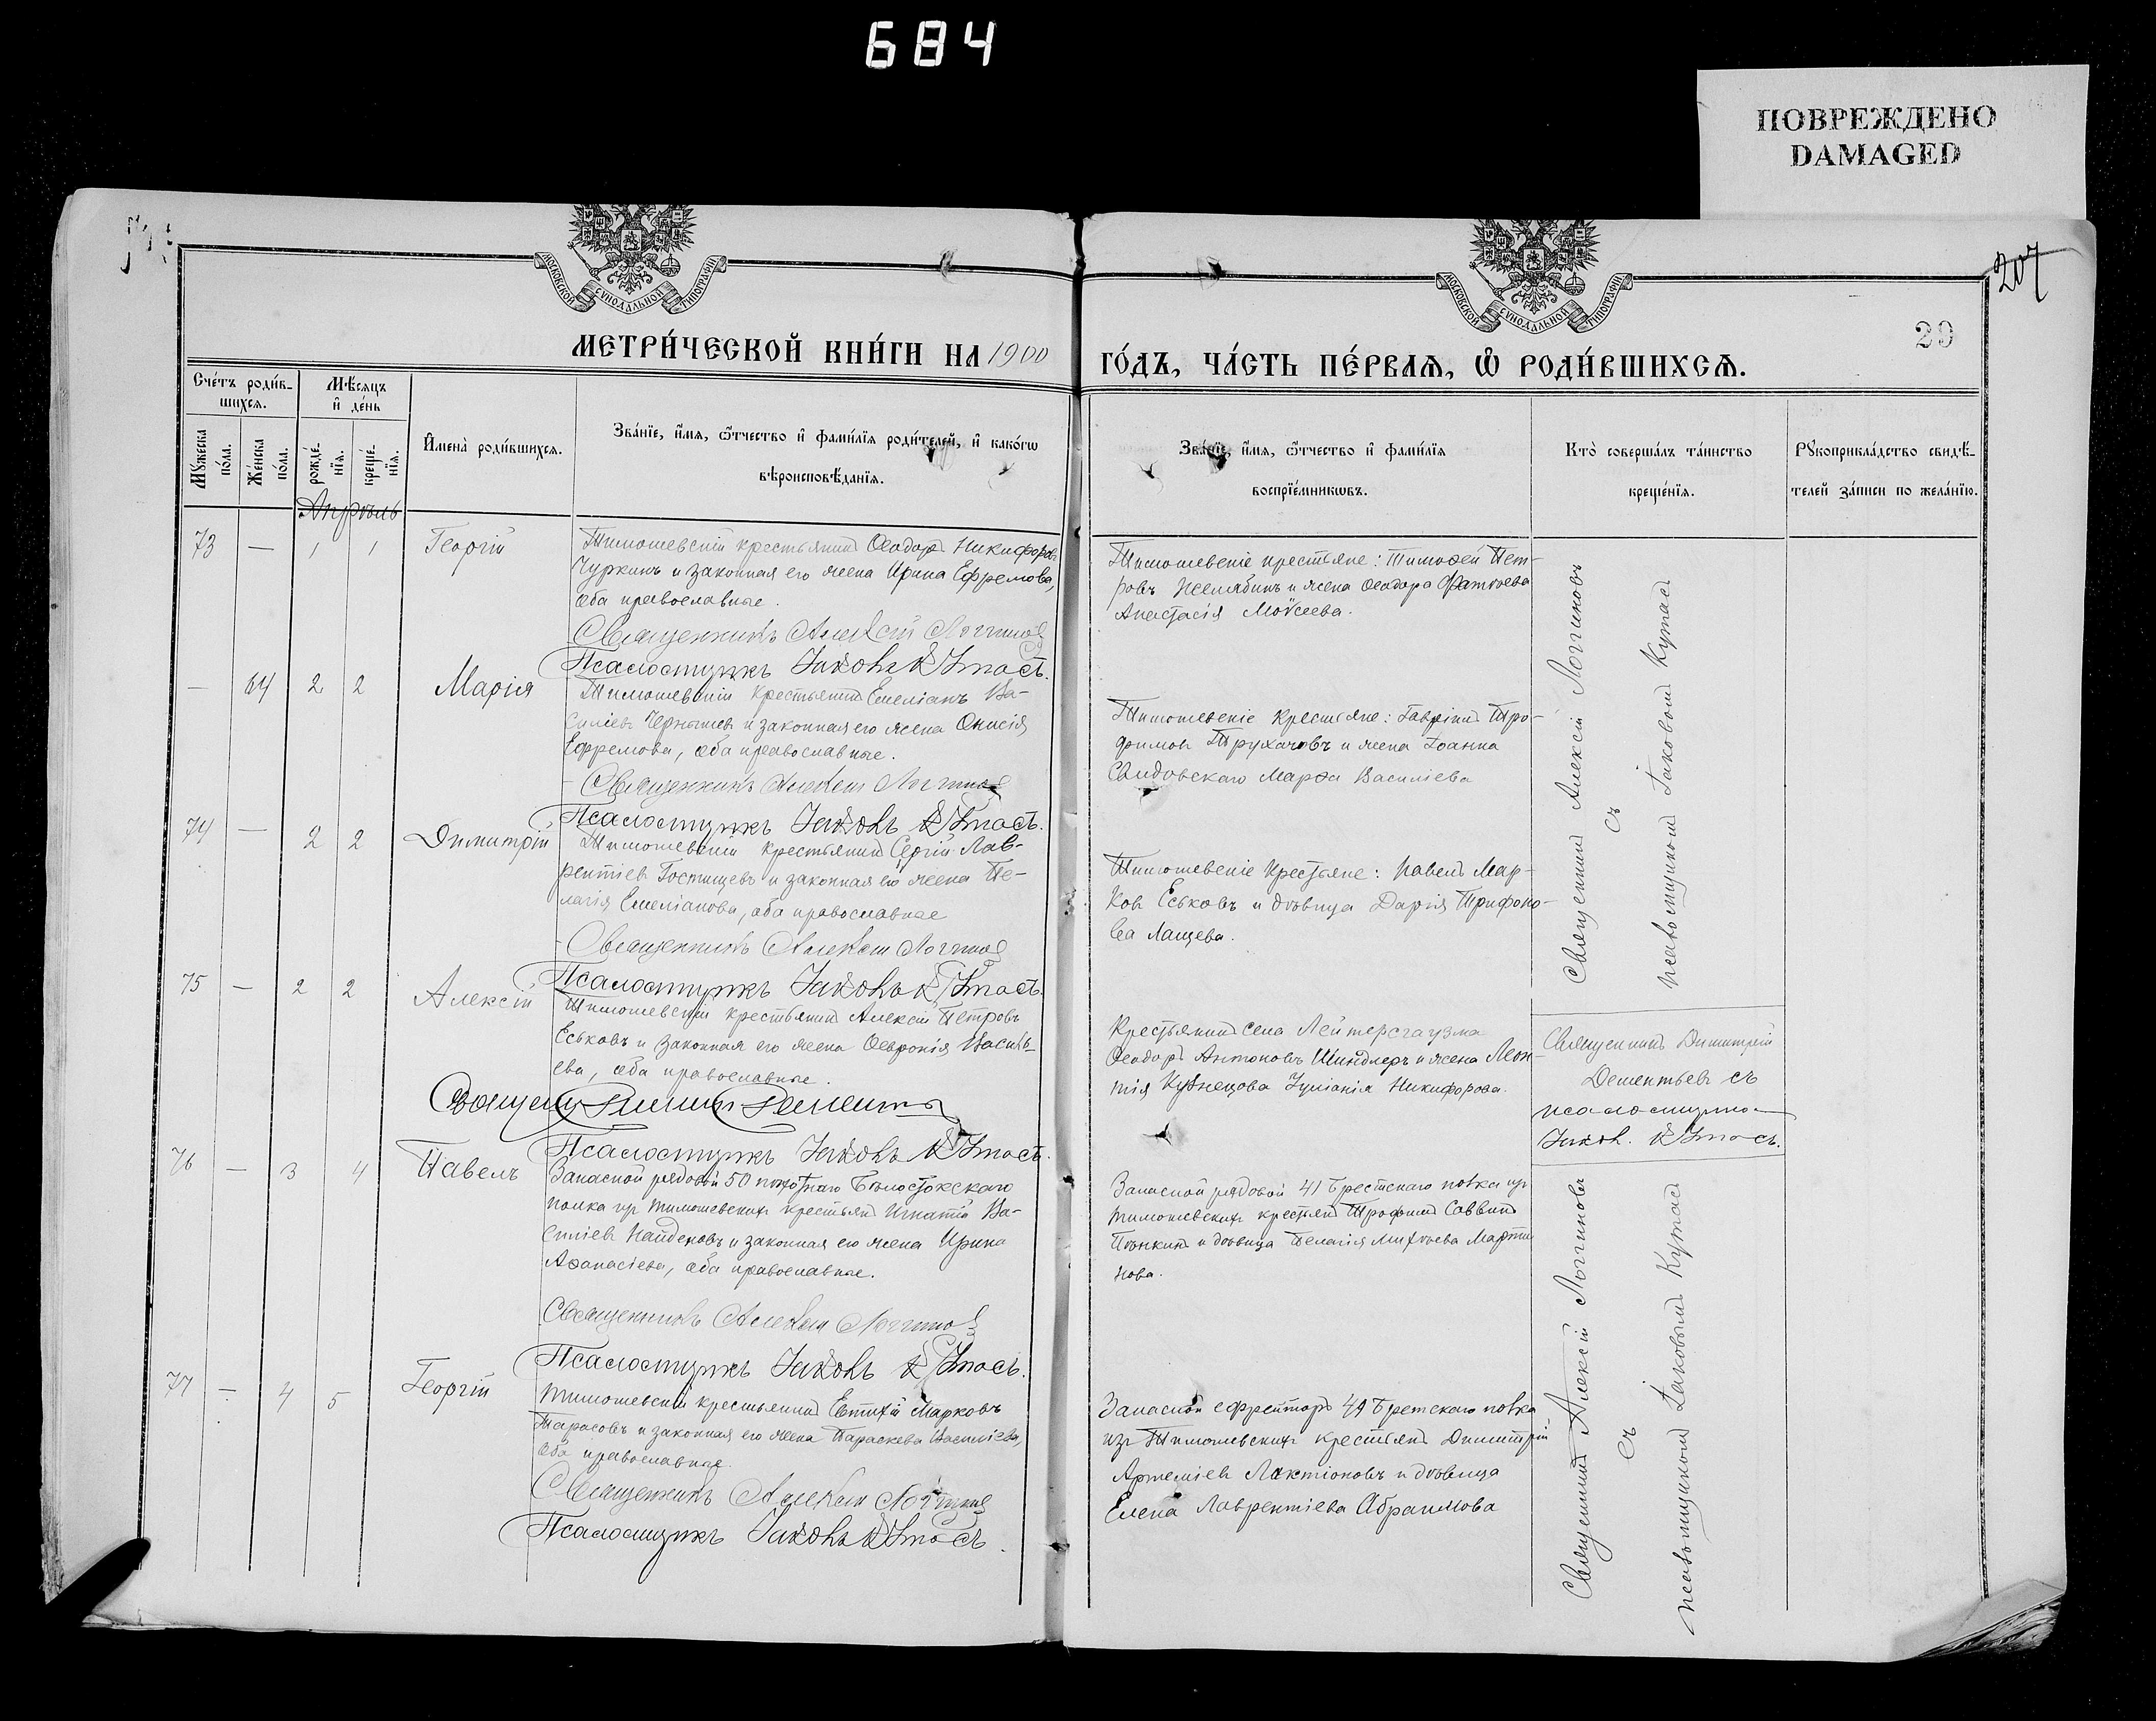 684
ПОВРЕЖДЕНО
DAMAGED
207
29
МОСКОВСКОЙ СУНОДАЛЬНОЙ ТИПОГРАФІИ
МОСКОВСКОЙ СУНОДАЛЬНОЙ ТИПОГРАФІИ
МЕТРИ́ЧЕСКОЙ КНИ́ГИ НА 1900
ГО́ДЪ, ЧА́СТЬ ПЕ́РВАѦ, Ѽ РОДИ́ВШИХСѦ.
Сче́тъ роди́в-
шихсѧ.
Мꙋжеска по́ла.
Же́нска по́ла.
Мѣ́сѧцъ
и҆ де́нь
рожде́-
нїѧ.
креще́-
нїѧ.
И҆мена̀ роди́вшихсѧ.
Зва́нїе, и҆́мѧ, ѻ҆́тчество и҆ фами́лїѧ роди́телей, и҆ како́гѡ
вѣроисповѣ́данїѧ.
Зва́нїе, и҆́мѧ, ѻ҆́тчество и҆ фами́лїѧ
воспрїе́мникѡвъ.
Кто̀ соверша́лъ та́инство
креще́нїѧ.
Рꙋкоприкла́дство свидѣ́-
телей за́писи по жела́нїю.
Апрѣль
73 — 1 1 Георгій
Тимошевскій крестьянинъ Ѳеодоръ Никифоровъ
Чуркинъ и законная его жена Ирина Ефремова,
оба православные.
Священникъ Алексій Логиновъ
Псаломщикъ Іаковъ Кутасъ.
Тимошевскіе крестьяне: Тимоѳей Пет-
ровъ Желябинъ и жена Ѳеодора Фатѣева
Анастасія Моѵсеева.
— 64 2 2 Марія
Тимошевскій крестьянинъ Емеліанъ Ва-
силіевъ Чернышев и законная его жена Онисія
Ефремова, оба православные.
Священникъ Алексій Логиновъ
Псаломщикъ Іаковъ Кутасъ.
Тимошевскіе крестьяне: Гавріилъ Тро-
фимовъ Трухачовъ и жена Іоанна
Свидовскаго Марѳа Василіева
74 — 2 2 Димитрій
Тимошевскій крестьянинъ Сергій Лав-
рентіевъ Гостищевъ и законная его жена Пе-
лагія Емеліанова, оба православные
Священникъ Алексій Логиновъ
Псаломщикъ Іаковъ Кутасъ.
Тимошевскіе крестьяне: Павелъ Мар-
ковъ Еськовъ и дѣвица Дарія Трифоно-
ва Лащева.
Священникъ Алексій Логиновъ
съ
псаломщикомъ Іаковомъ Кутасъ
75 — 2 2 Алексій
Тимошевскій крестьянинъ Алексій Петровъ
Еськовъ и законная его жена Ѳевронія Василь-
ева, оба православные.
Псаломщикъ Іаковъ Кутасъ.
Крестьянинъ села Лейтерсгаузна
Ѳеодоръ Антоновъ Шиндлеръ и жена Леон-
тія Кузнецова Іуліанія Никифорова.
Священникъ Димитрій
Дементьевъ съ
псаломщико
Іаков. Кутасъ.
76 — 3 4 Павелъ
Запасной рядовой 50 пѣхотнаго Бѣлостокскаго
полка изъ тимошевскихъ крестьянъ Игнатій Ва-
силіевъ Найденовъ и законная его жена Ирина
Аѳанасіева, оба православные.
Священникъ Алексій Логиновъ
Псаломщикъ Іаковъ Кутасъ.
Запасной рядовой 41 Брестскаго полка изъ
тимошевскихъ крестьянъ Трофимъ Саввинъ
Пѣнкинъ и дѣвица Пелагія Михѣева Марти
нова.
77 — 4 5 Георгій
Тимошевскій крестьянинъ Евтихій Марковъ
Тарасовъ и законная его жена Параскева Василіева,
оба православные.
Священникъ Алексій Логиновъ
Псаломщикъ Іаковъ Кутасъ.
Запасной ефрейторъ 41 Бретскаго полка
изъ Тимошевскихъ крестьянъ Димитрій
Артеміевъ Лактіоновъ и дѣвица
Елена Лаврентіева Абрамова
Священникъ Алексій Логиновъ
съ
псаломщикомъ Іаковымъ Кутасъ